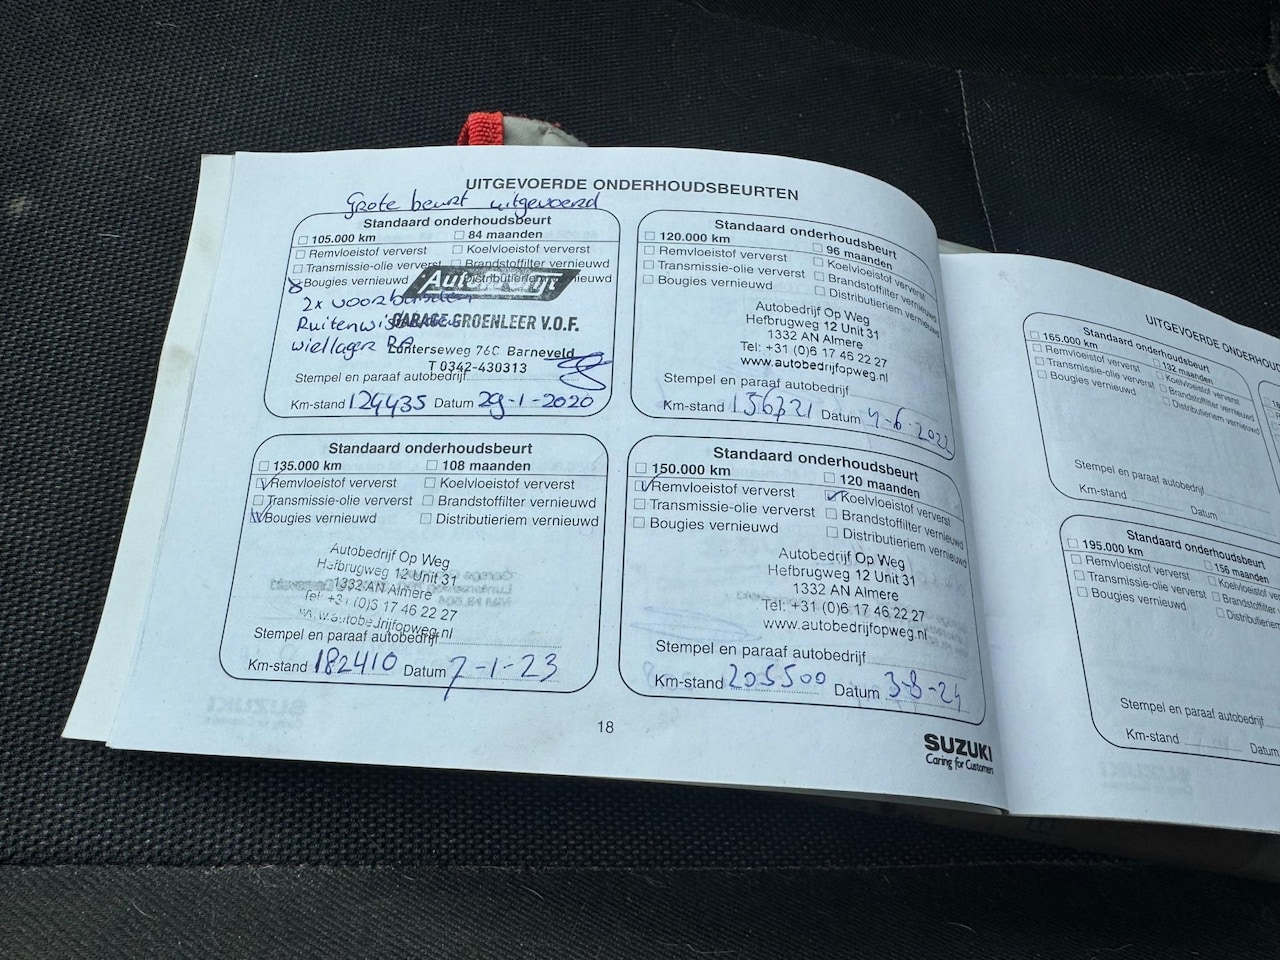 UITGEVOERDE ONDERHOUDSBEURTEN
Grote beurt uitgevoerd
Standaard onderhoudsbeurt
105.000 km 84 maanden
Remvloeistof ververst Koelvloeistof ververst
Transmissie-olie ververst Brandstoffilter vernieuwd
Bougies vernieuwd Distributieriem vernieuwd
2x voorbanden
Ruitenwissers
wiellager RA
GARAGE GROENLEER V.O.F.
Lunterseweg 76C Barneveld
T 0342-430313
Stempel en paraaf autobedrijf
Km-stand 124435 Datum 29-1-2020
Standaard onderhoudsbeurt
120.000 km 96 maanden
Remvloeistof ververst Koelvloeistof ververst
Transmissie-olie ververst Brandstoffilter vernieuwd
Bougies vernieuwd Distributieriem vernieuwd
Autobedrijf Op Weg
Hefbrugweg 12 Unit 31
1332 AN Almere
Tel: +31 (0)6 17 46 22 27
www.autobedrijfopweg.nl
Stempel en paraaf autobedrijf
Km-stand 156721 Datum 4-6-2022
Standaard onderhoudsbeurt
135.000 km 108 maanden
Remvloeistof ververst Koelvloeistof ververst
Transmissie-olie ververst Brandstoffilter vernieuwd
Bougies vernieuwd Distributieriem vernieuwd
Autobedrijf Op Weg
Hefbrugweg 12 Unit 31
1332 AN Almere
Tel: +31 (0)6 17 46 22 27
www.autobedrijfopweg.nl
Stempel en paraaf autobedrijf
Km-stand 182410 Datum 7-1-23
Standaard onderhoudsbeurt
150.000 km 120 maanden
Remvloeistof ververst Koelvloeistof ververst
Transmissie-olie ververst Brandstoffilter vernieuwd
Bougies vernieuwd Distributieriem vernieuwd
Autobedrijf Op Weg
Hefbrugweg 12 Unit 31
1332 AN Almere
Tel: +31 (0)6 17 46 22 27
www.autobedrijfopweg.nl
Stempel en paraaf autobedrijf
Km-stand 205500 Datum 3-8-24
18
SUZUKI
Caring for Customers
UITGEVOERDE ONDERHOUD
Standaard onderhoudsbeurt
165.000 km 132 maanden
Remvloeistof ververst Koelvloeistof ververst
Transmissie-olie ververst Brandstoffilter vernieuwd
Bougies vernieuwd Distributieriem vernieuwd
Stempel en paraaf autobedrijf
Km-stand Datum
Standaard onderhoudsbeurt
195.000 km 156 maanden
Remvloeistof ververst Koelvloeistof
Transmissie-olie ververst Brandstoffilter
Bougies vernieuwd Distributieriem
Stempel en paraaf autobedrijf
Km-stand Datum